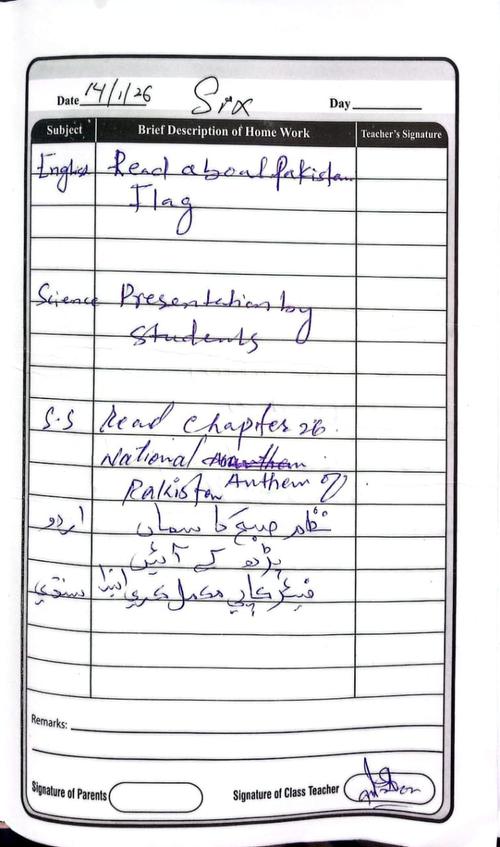 Date 14/1/26 Six Day
Subject Brief Description of Home Work Teacher's Signature
English Read about Pakistan
Flag
Science Presentation by
Students
S.S Read Chapter 26.
National
Pakistan Anthem of
اردو نظم صبح کا سماں
پڑھ کے آئیں
سنڌي فيئر ڪاپي مڪمل ڪري اينديا
Remarks:
Signature of Parents Signature of Class Teacher